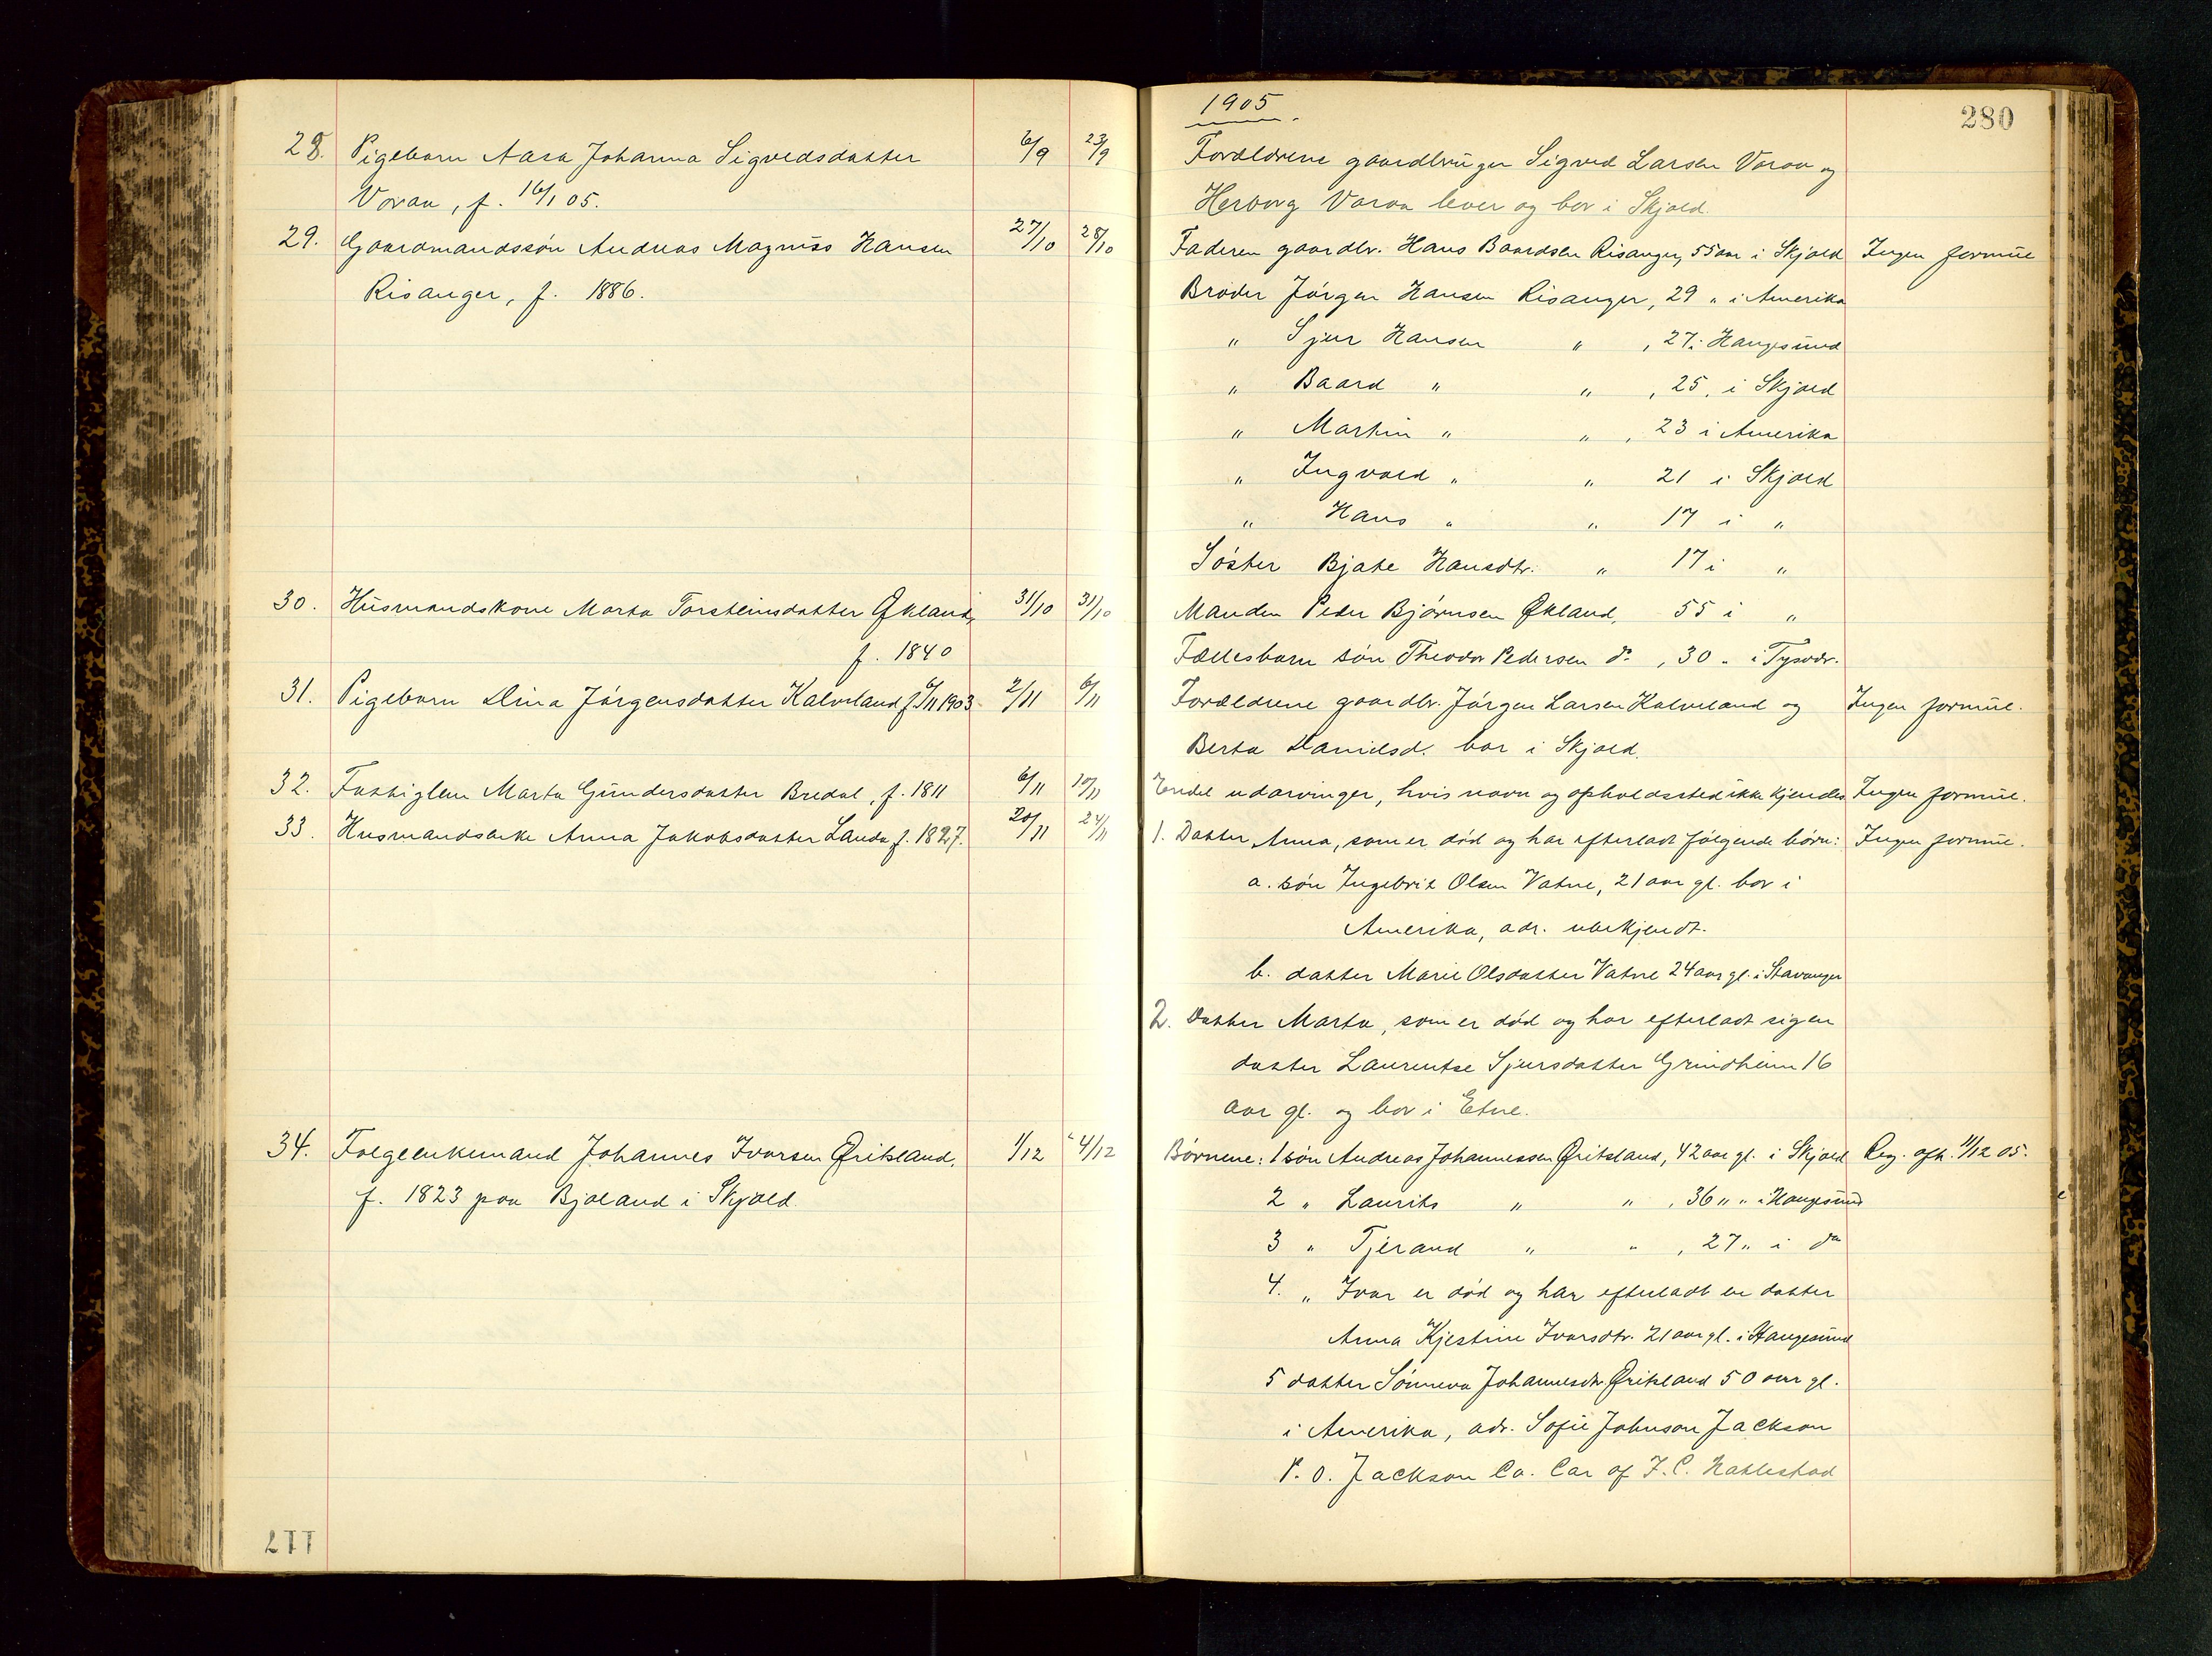 28. Pigebarn Aasa Johanna Sigvedsdatter 6/9 23/9
Voraa, f. 16/1 05.
29. Gaardmandssön Andreas Magnus Hansen 27/10 28/10
Risanger, f. 1886.
30. Husmandskone Marta Torsteinsdatter Økland, 31/10 31/10
f. 1840
31. Pigebarn Dina Jörgensdatter Kalveland f. 6/11 1903 2/11 6/11
32. Fattiglem Marta Gundersdatter Bredal, f. 1811 6/11 10/11
33. Husmandsenke Anna Jakobsdatter Landa f. 1827. 20/11 24/11
34. Folgeenkemand Johannes Ivarsen Øritsland, 1/12 4/12
f. 1823 paa Bjoland i Skjold.
117
1905.
280
Forældrene gaardbruger Sigved Larsen Voraa og
Herborg Voraa lever og bor i Skjold.
Faderen gaardbr. Hans Baardsen Risanger, 55 aar i Skjold Ingen formue
Broder Jörgen Hansen Risanger, 29 " i Amerika
" Sjur Hansen " , 27 i Haugesund
" Baard " " , 25, i Skjold
" Martin " " , 23 i Amerika
" Ingvald " " 21 i Skjold
" Hans " " 17 i "
Söster Bjate Hansdtr. " 17 i "
Manden Peder Björnsen Økland, 55 i "
Fællesbarn sön Theodor Pedersen do , 30 " i Tysvær.
Forældrene gaardbr. Jörgen Larsen Kalveland og Ingen formue.
Berta Danielsd. bor i Skjold.
Endel udarvinger, hvis navn og opholdssted ikke kjendes Ingen formue.
1. Datter Anna, som er död og har efterladt fölgende börn: Ingen formue.
a. sön Ingebrit Olsen Vatne, 21 aar gl. bor i
Amerika, adr. ubekjendt.
b. datter Marie Olsdatter Vatne 24 aar gl. i Stavanger
2. Datter Marta, som er död og har efterladt sig en
datter Laurentse Sjursdatter Grindheim 16
aar gl. og bor i Etne.
Börnene: 1 sön Andreas Johannessen Øritsland, 42 aar gl. i Skjold Reg. afh. 11/12 05.
2 " Laurits " " , 36 " " i Haugesund
3 " Tjerand " " , 27 " i do
4. " Ivar er död og har efterladt en datter
Anna Kjestine Ivarsdtr. 21 aar gl. i Haugesund
5 datter Sönneva Johannesdtr Øritsland 50 aar gl.
i Amerika, adr. Sofie Johnson Jackson
P. O. Jackson Co. Car of